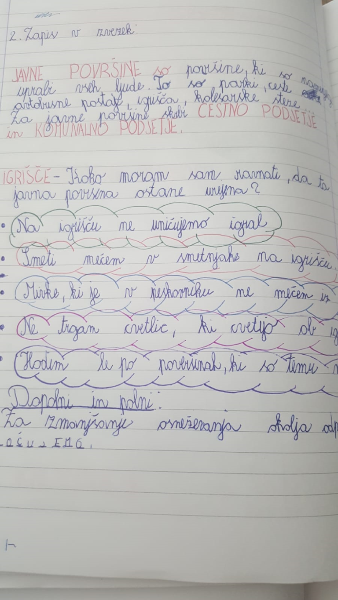 2. Zapis v zvezek:
JAVNE POVRŠINE so površine, ki so
uporabi vseh ljudi. To so parki, ceste
avtobusne postaje, igrišča, kolesarske steze.
Za javne površine skrbi CESTNO PODJETJE
in KOMUNALNO PODJETJE.
IGRIŠČE - Kako moram sam ravnati, da ta
javna površina ostane urejena?
• Na igrišču ne uničujemo igral
• Smeti mečem v smetnjake na igrišču,
• ki je v peskovniku ne mečem iz
• Ne trgam cvetlic, ki cvetijo ob ig
• Hodim le po površinah, ki so temu
Dopolni in polni:
Za zmanjšanje onesnaževanja okolja odp